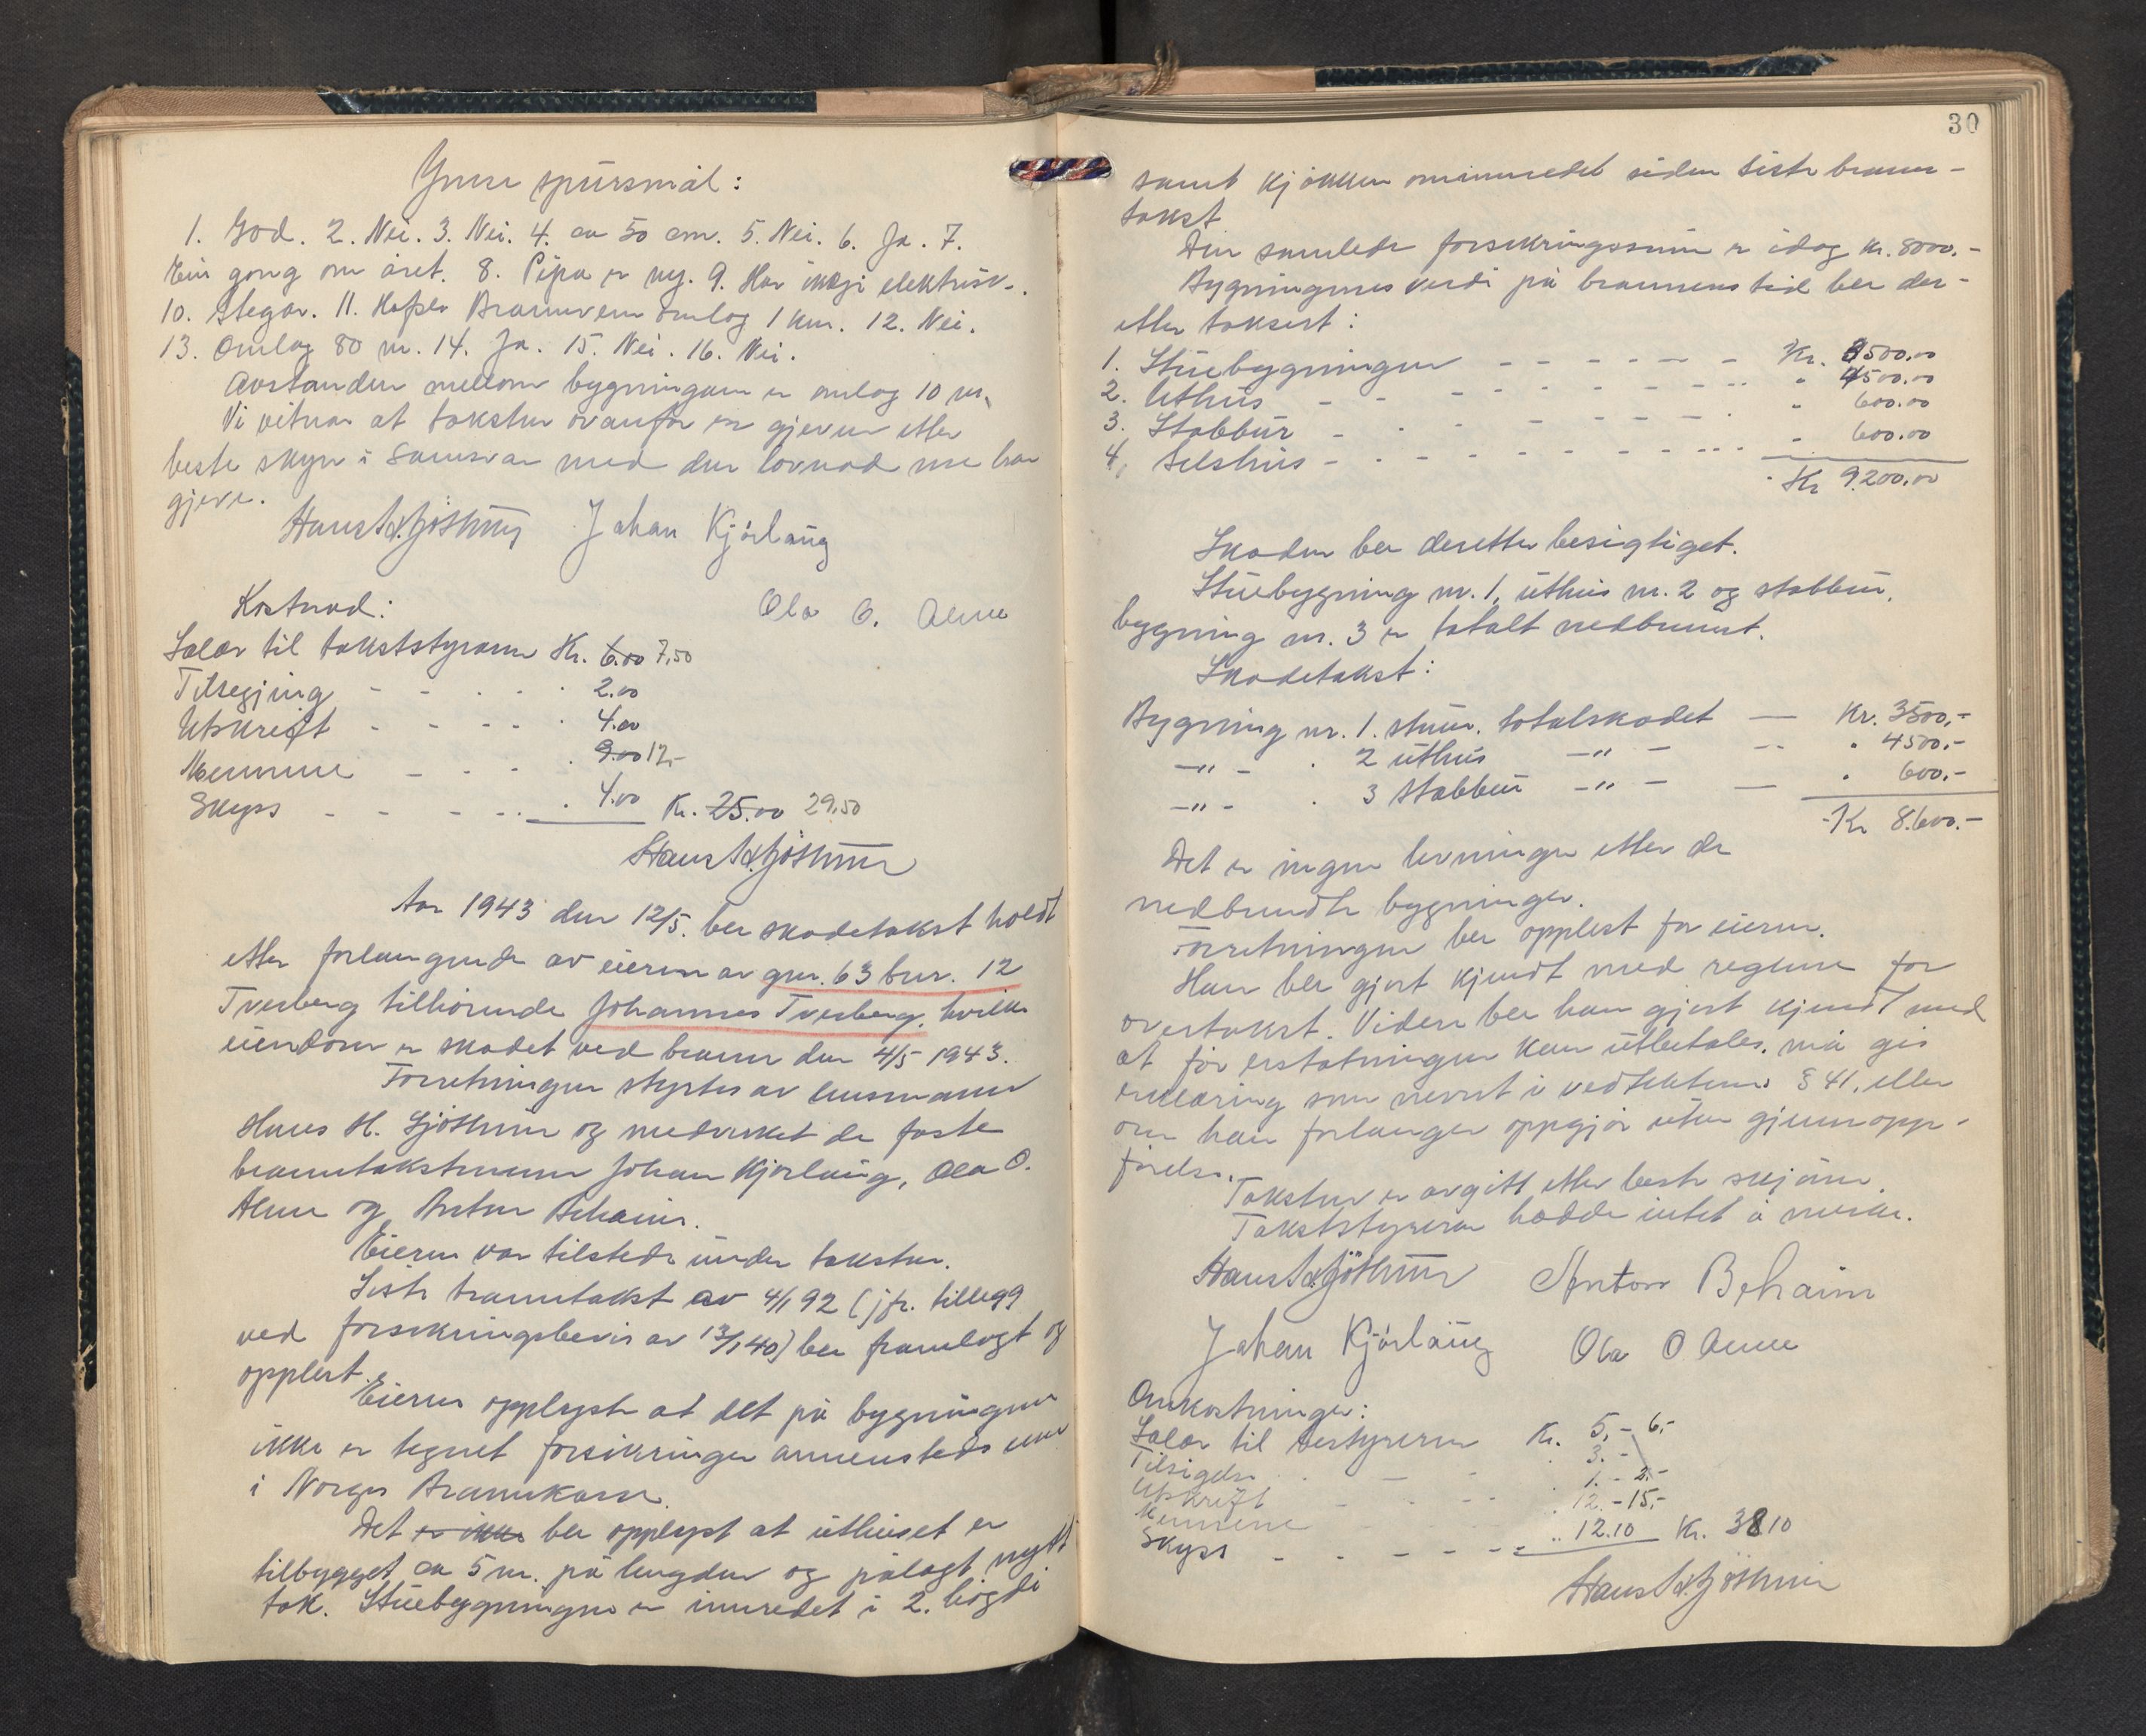 Ymse spursmål:
1. God. 2. Nei. 3. Nei. 4. ca 50 cm. 5. Nei. 6. Ja. 7.
Ein gong om året. 8. Pipa er ny. 9. Har ikkje elektrisk.
10. Stegar. 11. Hafslo Brannvern omlag 1 km. 12. Nei.
13. Omlag 80 m. 14. Ja. 15. Nei. 16. Nei.
Avstanden mellom bygningane er omlag 10 m.
Vi vitnar at taksten ovanfor er gjeven etter
beste skyn i Samsvar med den lovnad me har
gjeve.
Hans H. Sjøthun Johan Kjørlaug
Ola O. Alme
Kostnad:
Salær til takststyraren Kr. 6.00 7,50
Tilsegjing - - - - 2.00
Utskrift - - - - 4.00
Mennene - - - 9.00 12,-
Skyss - - - - - 4.00 Kr. 25.00 29,50
Hans H. Sjøthun
Aar 1943 den 12/5. ble skadetakst holdt
etter forlangende av eieren av gnr. 63 bnr. 12
Tvesberg tilhørende Johannes Tvesberg, hvilke
eiendom er skadet ved brann den 4/5 1943.
Forretningen styrtes av lensmann
Hans H. Sjøthun og medvirket de faste
branntakstmenn Johan Kjørlaug, Ola O.
Alme og Anton Beheim.
Eieren var tilstede under taksten.
Siste branntakst av 4/1 92 (jfr. tillegg
ved forsikringsbevis av 13/1 40) ble framlagt og
opplest.
Eieren opplyste at det på bygningene
ikke er tegnet forsikringer annensteds enn
i Norges Brannkasse.
Det er ikke ble opplyst at uthuset er
tilbygget ca 5 m. på lengden og pålagt nytt
tak. Stuebygningen er innredet i 2. høgdi
30
samt kjøkken ominnredet siden siste brann-
takst
Den samlede forsikringssum er idag kr. 8000.-
Bygningenes verdi på brannens tid ble der-
etter taksert:
1. Stuebygningen - - - - - - Kr. 3500.00
2. Uthus - - - - - - - " 4500.00
3. Stabbur - - - - - - - " 600.00
4. Selshus - - - - - - - " 600.00
Kr 9200.00
Skaden ble deretter besigtiget.
Stuebygning nr. 1, uthus nr. 2 og stabbur,
bygning nr. 3 er totalt nedbrunnt.
Skadetakst:
Bygning nr. 1. stuen. totalskadet — Kr. 3500,-
-"- . 2 uthus -"- - " 4500.-
-"- . 3 stabbur -"- — " 600.-
Kr 8.600.-
Det er ingen levninger etter de
nedbrendte bygninger.
Forretningen ble opplest for eieren.
Han ble gjort kjendt med reglene for
overtakst. Videre ble han gjort kjendt med
at før erstatningen kan utbetales, må gis
erklæring som nevnt i vedtektenes § 41, eller
om han forlanger oppgjør uten gjennopp-
førelse.
Taksten er avgitt etter beste skjønn.
Takststyreren hadde intet å merke.
Hans H. Sjøthun Anton Beheim
Johan Kjørlaug Ola O Alme
Omkostninger:
Salær til bestyreren Kr. 5,- 6,-
Tilsigelse . - - . 3.-
Utskrift - - - - . 1.- 2.-
Mennene - - . 12.- 15,-
Skyss - - - - - - " 12.10 Kr. 3810
Hans H. Sjøthun